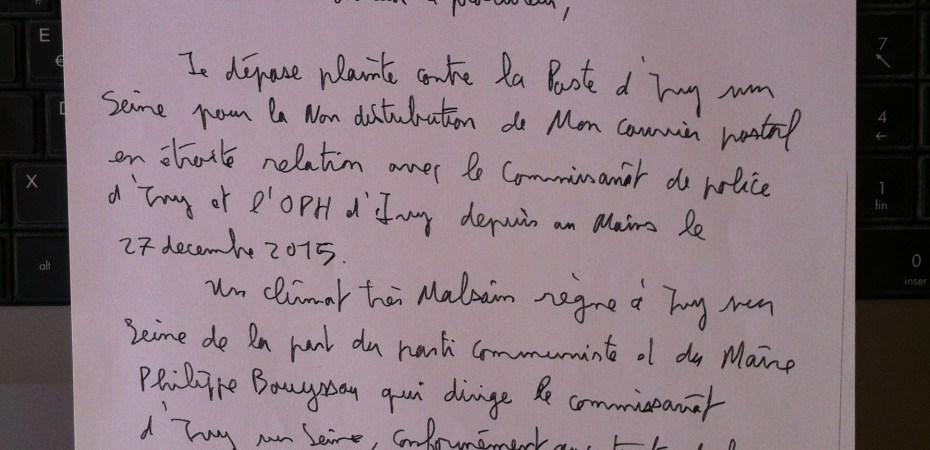 procureur,
Je dépose plainte contre la Poste d'Ivry sur
Seine pour la Non distribution de Mon courrier postal
en étroite relation avec le Commissariat de police
d'Ivry et l'OPH d'Ivry depuis au Moins le
27 decembre 2015.
Un climat très Malsain règne à Ivry sur
Seine de la part du parti communiste et du Maire
Philippe Bouyssou qui dirige le commissariat
d'Ivry sur Seine, Conformément aux
E
X
alt
7
4
1
fin
0
inser